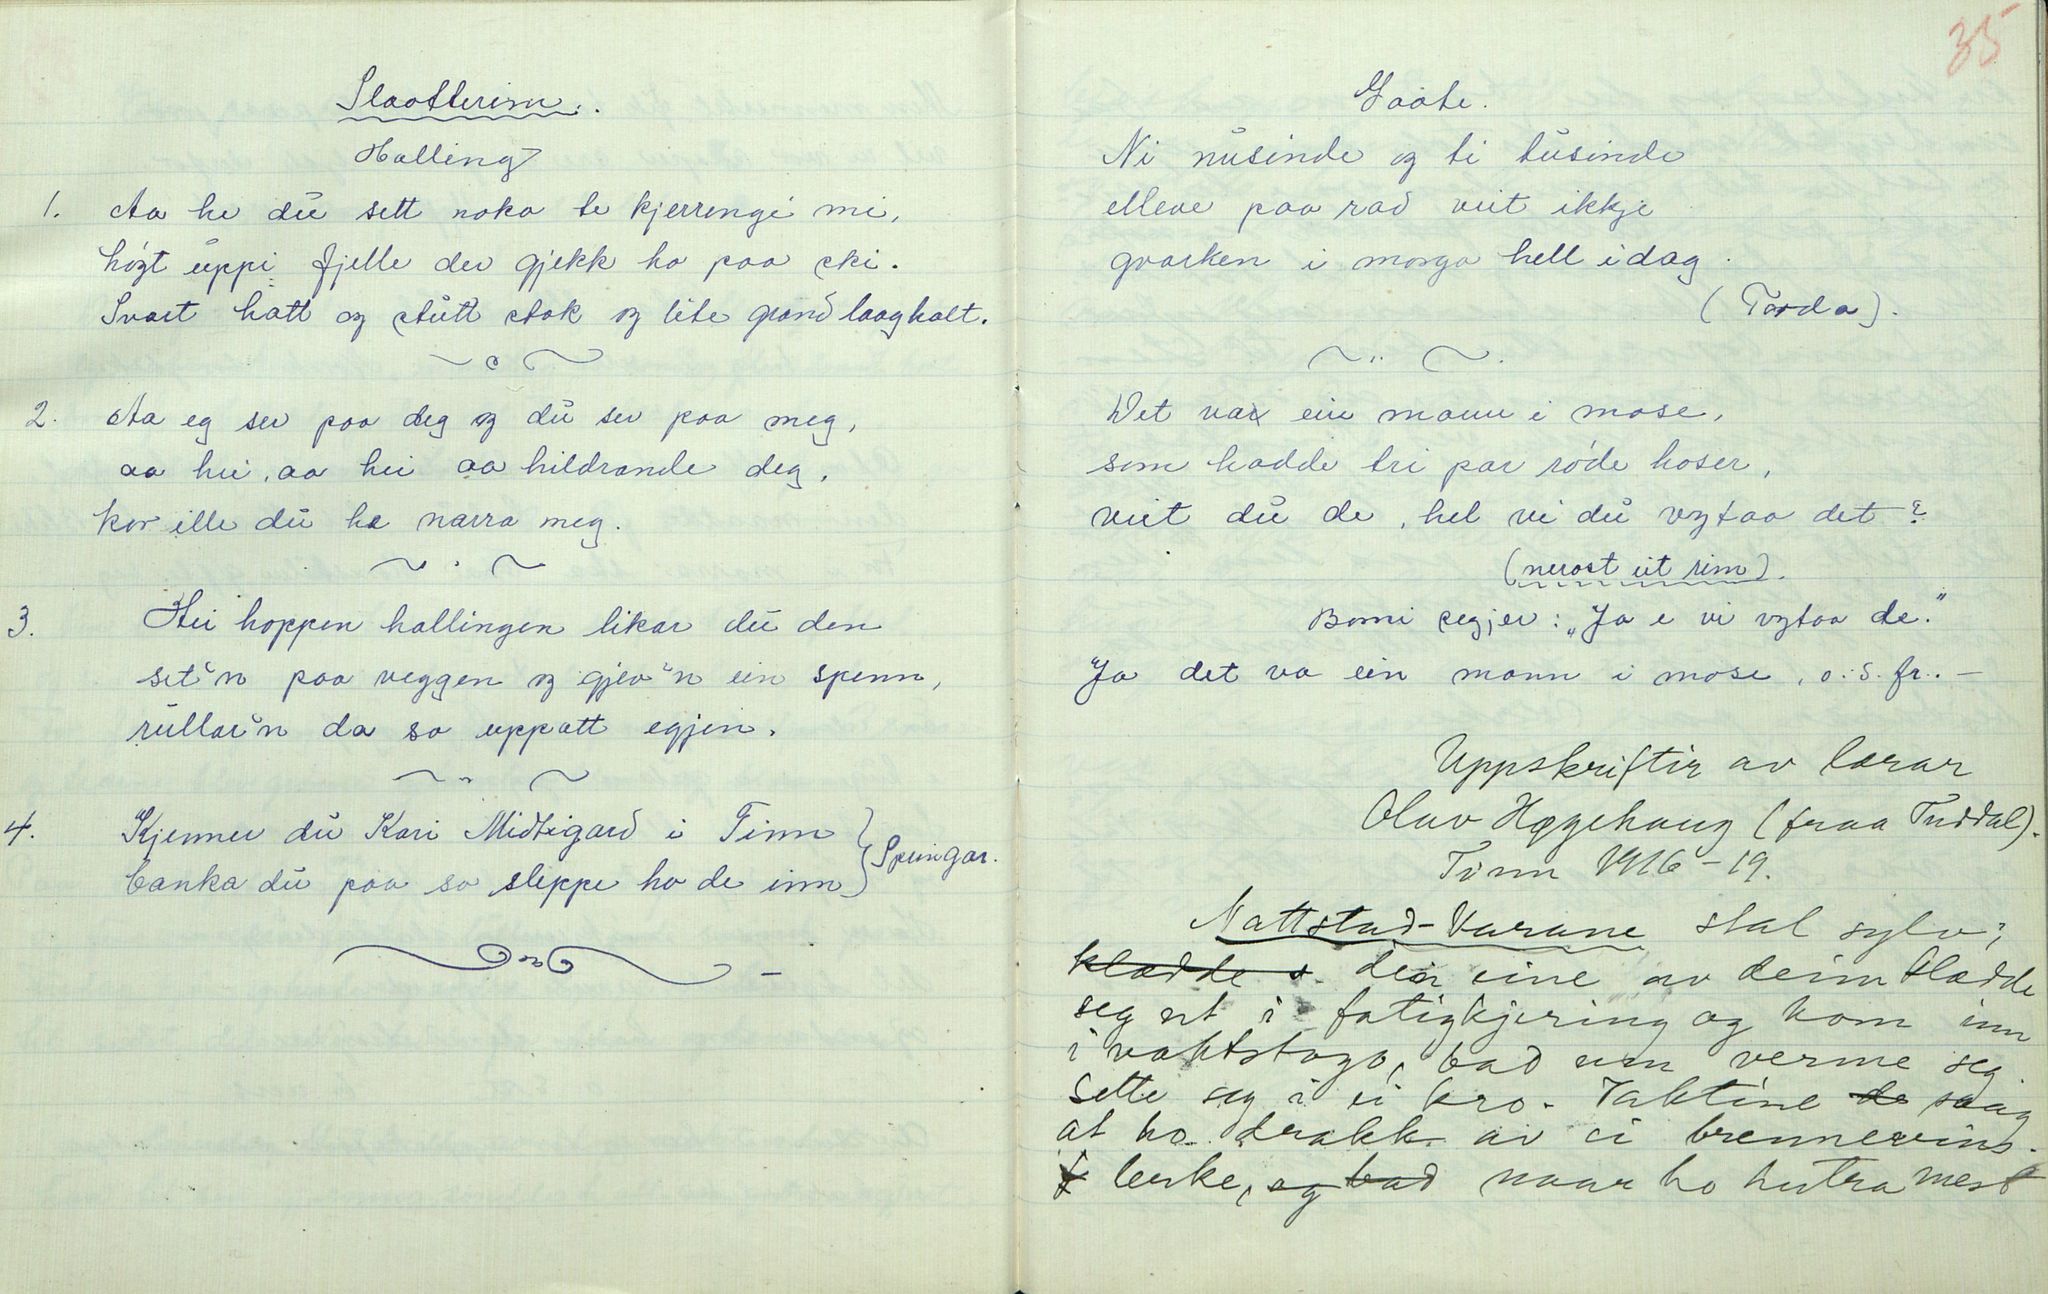 Slaatterim.
Halling
1. Aa he du sett noko te kjerringi mi,
høgt uppi fjelle der gjekk ho paa ski.
Svart hatt og stutt stak og lite grand laaghalt.
2. Aa eg ser paa deg og du ser paa meg,
aa hei, aa hei aa hildrande deg,
kor ille du ha narra meg.
3. Hei hoppen hallingen likar du den
set'n paa veggen og gjev'n ein spenn,
rullar'n da so uppatt egjen.
4. Kjenner du Kari Midtigard i Tinn
banka du paa so sleppe ho de inn
Springar.
35
Gaate.
Ni nusinde og ti tusinde
elleve paa rad veit ikkje
gvarken i morgo hell idag.
(Torda).
Det var ein mann i mose,
som hadde tri par røde hoser,
veit du de, hel vi du vgtaa det?
(nevost eit rim).
Borni segjer: „Ja e vi vgtaa de."
Ja det va ein mann i mose, o.s.fr. –
Uppskriftir av lærar
Olav Høgehaug (fraa Tuddal).
Tinn 1916–19.
Nattstad-Karane stal sylv;
klædde s den eine av deim klædde
seg ut i fatigkjering og kom inn
i vaktstogo, bad um verme seg.
Sette seg i ei kro. Vaktine de saag
at ho drakk av ei brennevins-
f lerke, og bad naar ho hutra mest